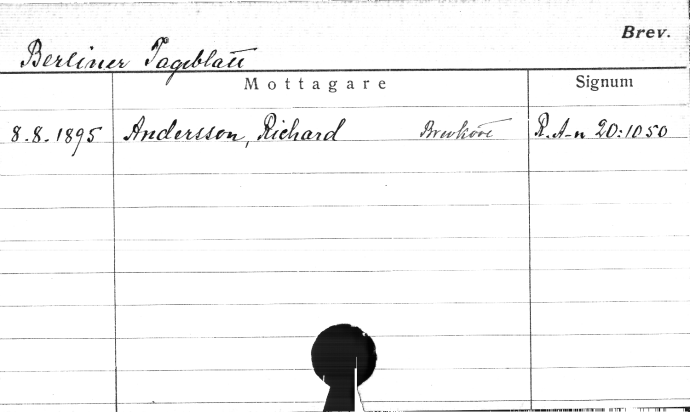 Brev.
Berliner Tageblatt
Mottagare Signum
8.8.1895 Andersson, Richard R. A-n 20:1050